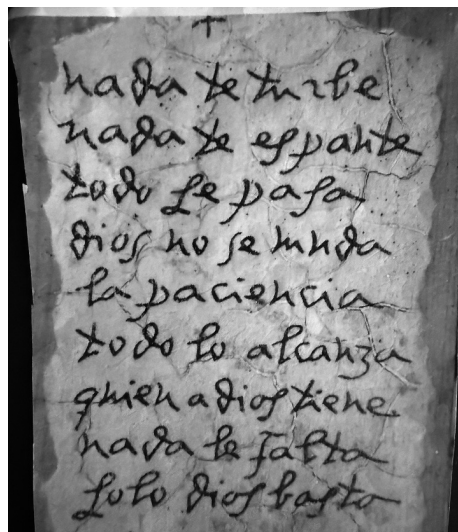 nada te turbe
nada te espante
todo se pasa
dios no se muda
la paciencia
todo lo alcanza
quien a dios tiene
nada le falta
solo dios basta